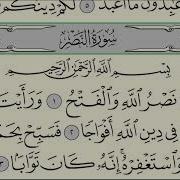 عَبِدُونَ مَآ أَعْبُدُ ٥ لَكُمْ دِينُكُمْ
سُورَةُ النَّصْرِ
بِسْمِ اللَّهِ الرَّحْمَٰنِ الرَّحِيمِ
نَصْرُ اللَّهِ وَالْفَتْحُ ١ وَرَأَيْتَ
فِي دِينِ اللَّهِ أَفْوَاجًا ٢ فَسَبِّحْ بِحَمْ
وَاسْتَغْفِرْهُ إِنَّهُ كَانَ تَوَّابًا ٣